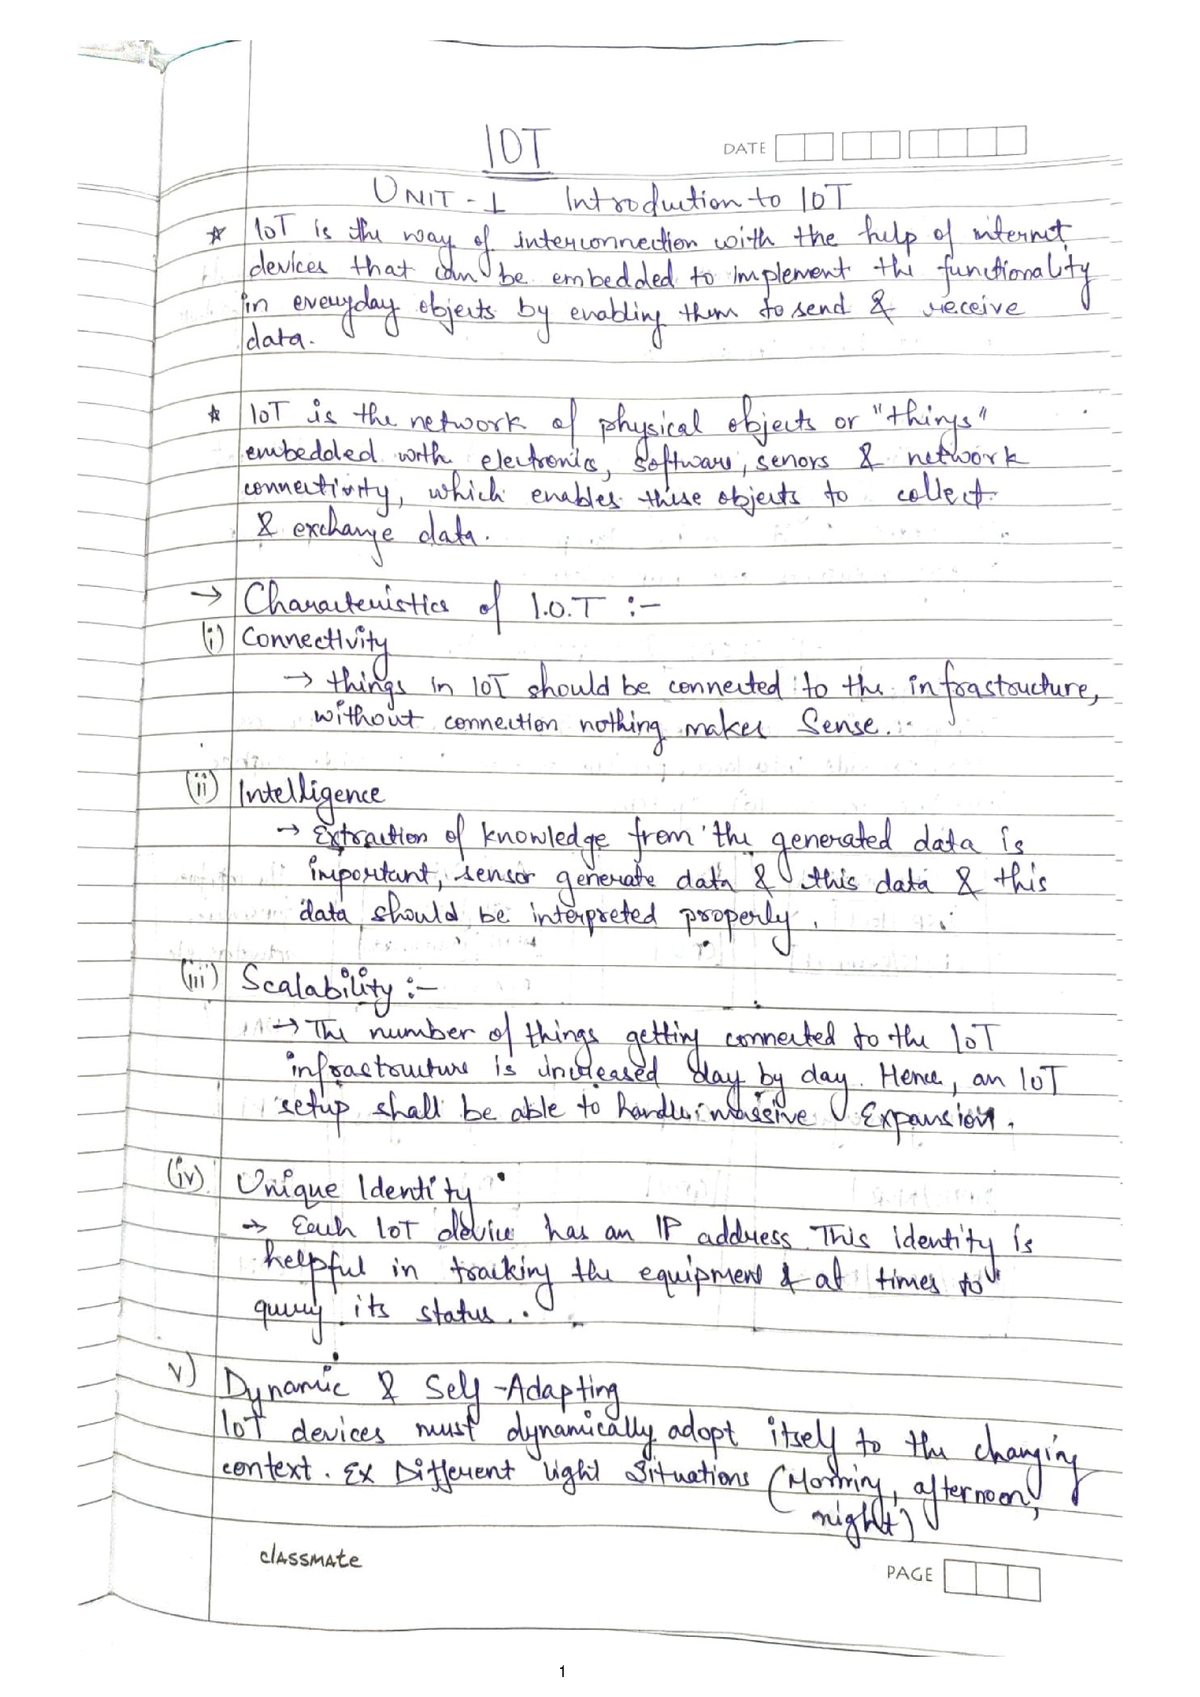 IOT
DATE
UNIT-1 Introduction to IOT
☆ IoT is the way of interconnection with the help of internet
devices that can be embedded to implement the functionality
in everyday objects by enabling them to send & receive
data.
☆ IoT is the network of physical objects or "things"
embedded with electronics, software, senors & network
connectivity, which enables these objects to collect
& exchange data.
→ Characteristics of I.O.T :-
(i) Connectivity
→ things in IOT should be connected to the infrastructure,
without connection nothing makes Sense.
(ii) Intelligence
→ Extraction of knowledge from the generated data is
important, sensor generate data & this data & this
data should be interpreted properly.
(iii) Scalability :-
→ The number of things getting connected to the IoT
infrastructure is increased day by day. Hence, an IoT
setup shall be able to handle massive Expansion.
(iv) Unique Identity
→ Each IoT device has an IP address. This identity is
helpful in tracking the equipment & at times to
query its status.
v) Dynamic & Self-Adapting
IoT devices must dynamically adopt itself to the changing
context. Ex Different light Situations (Morning, afternoon,
night)
classmate
PAGE
1